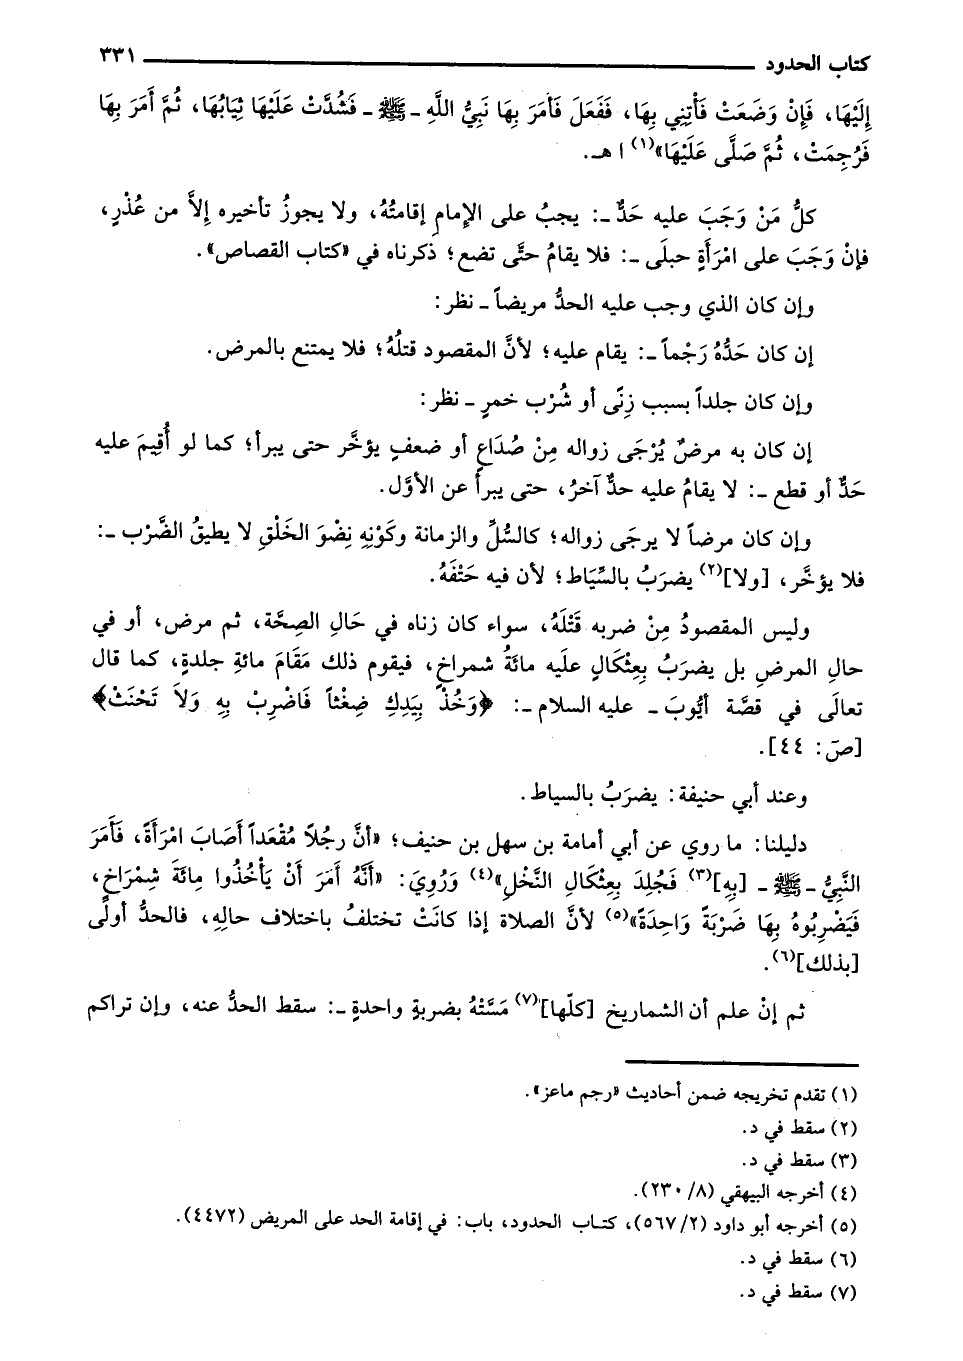 كتاب الحدود ٣٣١
إِلَيْهَا، فَإِنْ وَضَعَتْ فَأْتِنِي بِهَا، فَفَعَلَ فَأَمَرَ بِهَا نَبِيُّ اللَّهِ ـ ﷺ ـ فَشُدَّتْ عَلَيْهَا ثِيَابُهَا، ثُمَّ أَمَرَ بِهَا
فَرُجِمَتْ، ثُمَّ صَلَّى عَلَيْهَا»(١) ا هـ.
كلُّ مَنْ وَجَبَ عليه حَدٌّ ـ: يجبُ على الإمامِ إقامتُهُ، ولا يجوزُ تأخيره إلاَّ من عُذْرٍ،
فإنْ وَجَبَ على امْرَأَةٍ حبلَى ـ: فلا يقامُ حتَّى تضع؛ ذكرناه في «كتاب القصاص».
وإن كان الذي وجب عليه الحدُّ مريضاً ـ نظر:
إن كان حَدُّهُ رَجْماً ـ: يقام عليه؛ لأنَّ المقصود قتلُهُ؛ فلا يمتنع بالمرض.
وإن كان جلداً بسبب زِنًى أو شُرْب خمرٍ ـ نظر:
إن كان به مرضٌ يُرْجَى زواله مِنْ صُدَاعٍ أو ضعفٍ يؤخَّر حتى يبرأ؛ كما لو أُقِيمَ عليه
حَدٌّ أو قطع ـ: لا يقامُ عليه حدٌّ آخرُ، حتى يبرأ عن الأوَّل.
وإن كان مرضاً لا يرجَى زواله؛ كالسُّلِّ والزمانة وكَوْنِهِ نِضْوَ الخَلْقِ لا يطيقُ الضَّرْب ـ:
فلا يؤخَّر، [ولا](٢) يضرَبُ بالسِّيَاط؛ لأن فيه حَتْفَهُ.
وليس المقصودُ مِنْ ضربه قَتْلَهُ، سواء كان زناه في حَالِ الصِحَّة، ثم مرض، أو في
حالِ المرضِ بل يضرَبُ بِعِثْكَالٍ علَيه مائَةُ شمراخٍ، فيقوم ذلك مَقَامَ مائةِ جلدةٍ، كما قال
تعالَى في قصَّة أيُّوبَ ـ عليه السلام ـ: ﴿وَخُذْ بِيَدِكِ ضِغْثاً فَاضْرِبْ بِهِ وَلاَ تَحْنَثْ﴾
[صَ: ٤٤].
وعند أبي حنيفة: يضرَبُ بالسياط.
دليلنا: ما روي عن أبي أمامة بن سهل بن حنيف؛ «أنَّ رجُلاً مُقْعَداً أَصَابَ امْرَأَةً، فَأَمَرَ
النَّبِيُّ ـ ﷺ ـ [بِهِ](٣) فَجُلِدَ بِعِثْكَالِ النَّخْلِ»(٤) وَرُوِيَ: «أَنَّهُ أَمَرَ أَنْ يَأْخُذُوا مِائَةَ شِمْرَاخٍ،
فَيَضْرِبُوهُ بِهَا ضَرْبَةً وَاحِدَةً»(٥) لأنَّ الصلاة إذا كانَتْ تختلفُ باختلاف حالِهِ، فالحدُّ أولَى
[بذلك](٦).
ثم إنْ علم أن الشماريخ [كلّها](٧) مَسَّتْهُ بضربةٍ واحدةٍ ـ: سقط الحدُّ عنه، وإن تراكم
(١) تقدم تخريجه ضمن أحاديث «رجم ماعز».
(٢) سقط في د.
(٣) سقط في د.
(٤) أخرجه البيهقي (٨/ ٢٣٠).
(٥) أخرجه أبو داود (٢/ ٥٦٧)، كتاب الحدود، باب: في إقامة الحد على المريض (٤٤٧٢).
(٦) سقط في د.
(٧) سقط في د.